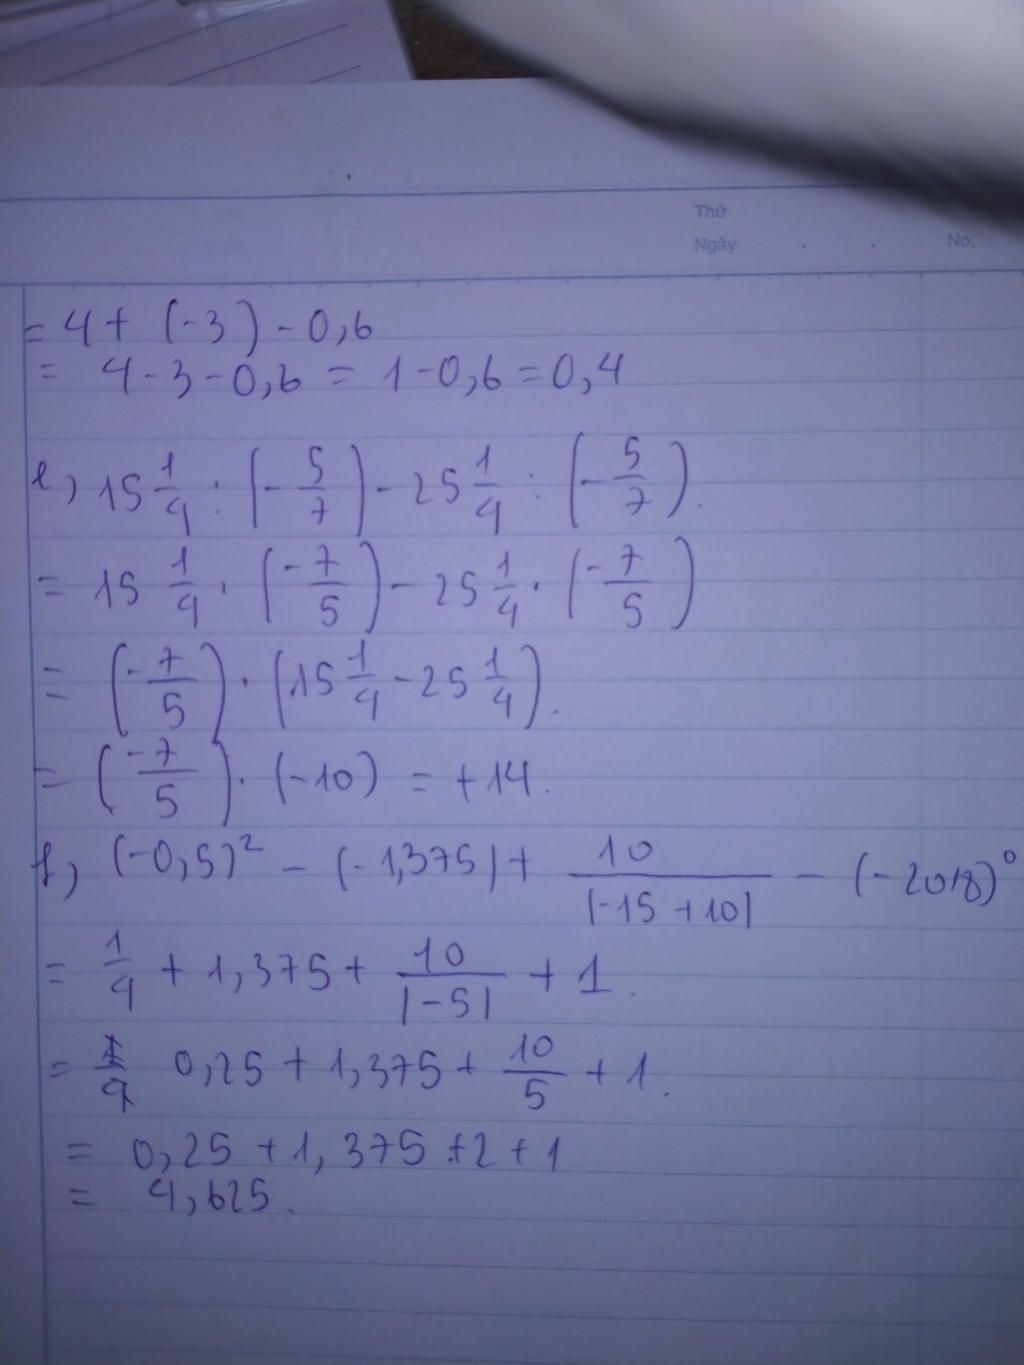 Thứ
Ngày . . No.
= 4 + (-3) - 0,6
= 4 - 3 - 0,6 = 1 - 0,6 = 0,4
e, 15 1/4 : (- 5/7) - 25 1/4 : (- 5/7).
= 15 1/4 . (-7/5) - 25 1/4 . (-7/5)
= (-7/5) . (15 1/4 - 25 1/4).
= (-7/5) . (-10) = +14.
f, (-0,5)² - (-1,375) + 10/|-15 +10| - (-2018)⁰
= 1/4 + 1,375 + 10/|-5| + 1.
= 0,25 + 1,375 + 10/5 + 1.
= 0,25 + 1,375 + 2 + 1
= 4,625.